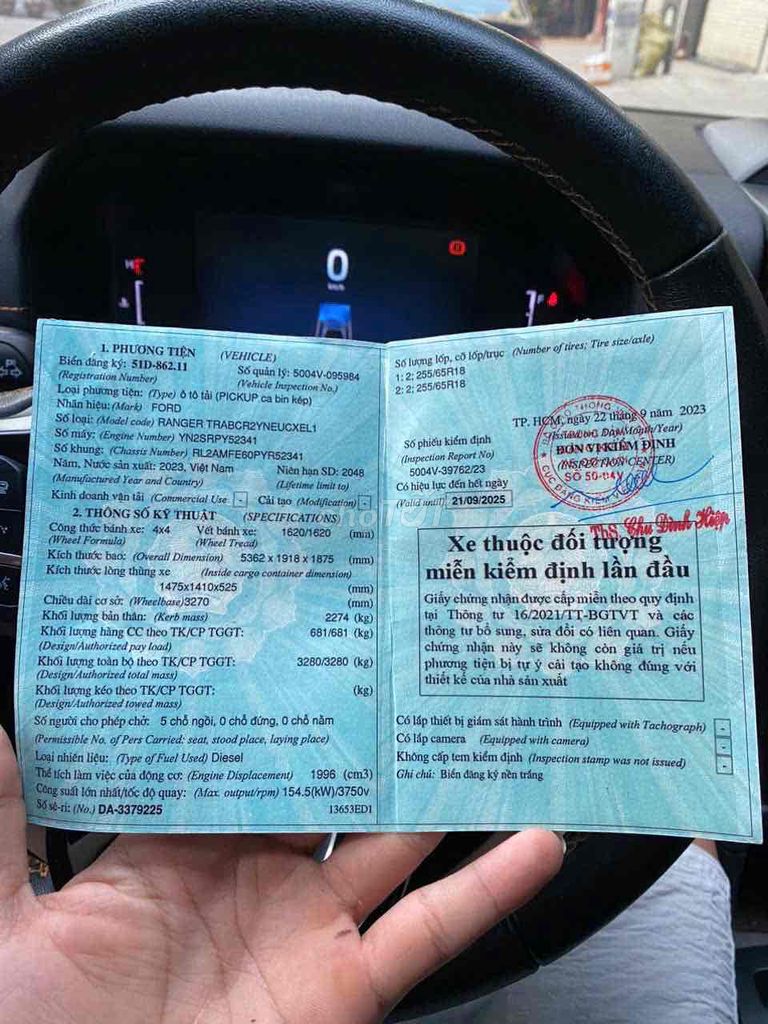 0
km/h
H
F
P
1. PHƯƠNG TIỆN (VEHICLE)
Biển đăng ký: 51D-862.11 Số quản lý: 5004V-095984
(Registration Number) (Vehicle Inspection No.)
Loại phương tiện: (Type) ô tô tải (PICKUP ca bin kép)
Nhãn hiệu: (Mark) FORD
Số loại: (Model code) RANGER TRABCR2YNEUCXEL1
Số máy: (Engine Number) YN2SRPY52341
Số khung: (Chassis Number) RL2AMFE60PYR52341
Năm, Nước sản xuất: 2023, Việt Nam Niên hạn SD: 2048
(Manufactured Year and Country) (Lifetime limit to)
Kinh doanh vận tải (Commercial Use) - Cải tạo (Modification) -
2. THÔNG SỐ KỸ THUẬT (SPECIFICATIONS)
Công thức bánh xe: 4x4 Vết bánh xe: 1620/1620 (mm)
(Wheel Formula) (Wheel Tread)
Kích thước bao: (Overall Dimension) 5362 x 1918 x 1875 (mm)
Kích thước lòng thùng xe (Inside cargo container dimension)
1475x1410x525 (mm)
Chiều dài cơ sở: (Wheelbase) 3270 (mm)
Khối lượng bản thân: (Kerb mass) 2274 (kg)
Khối lượng hàng CC theo TK/CP TGGT: 681/681 (kg)
(Design/Authorized pay load)
Khối lượng toàn bộ theo TK/CP TGGT: 3280/3280 (kg)
(Design/Authorized total mass)
Khối lượng kéo theo TK/CP TGGT: (kg)
(Design/Authorized towed mass)
Số người cho phép chở: 5 chỗ ngồi, 0 chỗ đứng, 0 chỗ nằm
(Permissible No. of Pers Carried: seat, stood place, laying place)
Loại nhiên liệu: (Type of Fuel Used) Diesel
Thể tích làm việc của động cơ: (Engine Displacement) 1996 (cm3)
Công suất lớn nhất/tốc độ quay: (Max. output/rpm) 154.5(kW)/3750v
Số sê-ri: (No.) DA-3379225 13653ED1
Số lượng lốp, cỡ lốp/trục (Number of tires; Tire size/axle)
1: 2; 255/65R18
2: 2; 255/65R18
TP. HCM, ngày 22 tháng 9 năm 2023
(Issued on: Day/Month/Year)
Số phiếu kiểm định ĐƠN VỊ KIỂM ĐỊNH
(Inspection Report No) (INSPECTION CENTER)
5004V-39762/23 SỐ 50-04V
Có hiệu lực đến hết ngày
(Valid until) 21/09/2025
ThS. Chu Đình Hiệp
Xe thuộc đối tượng
miễn kiểm định lần đầu
Giấy chứng nhận được cấp miễn theo quy định
tại Thông tư 16/2021/TT-BGTVT và các
thông tư bổ sung, sửa đổi có liên quan. Giấy
chứng nhận này sẽ không còn giá trị nếu
phương tiện bị tự ý cải tạo không đúng với
thiết kế của nhà sản xuất
Có lắp thiết bị giám sát hành trình (Equipped with Tachograph) -
Có lắp camera (Equipped with camera) -
Không cấp tem kiểm định (Inspection stamp was not issued) -
Ghi chú: Biển đăng ký nền trắng